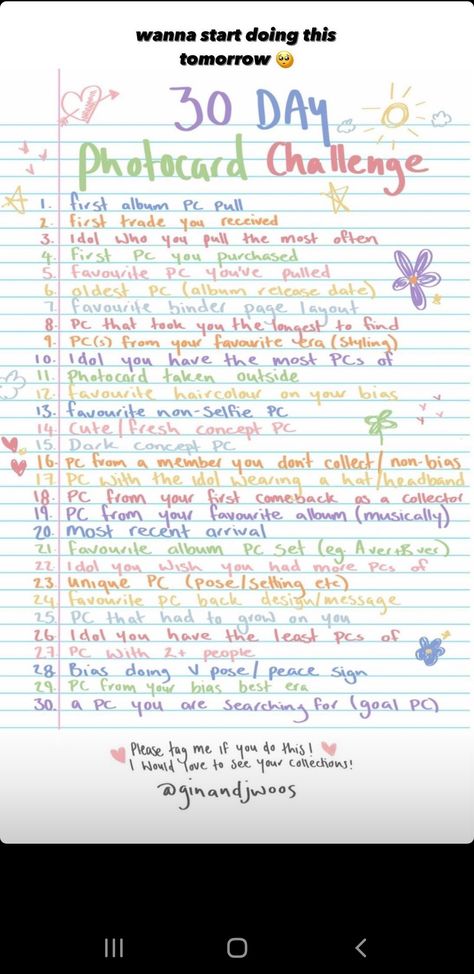 wanna start doing this
tomorrow 🥺
30 DAY
Photocard Challenge
1. first album PC pull
2. first trade you received
3. Idol who you pull the most often
4. First PC you purchased
5. favourite PC you've pulled
6. oldest PC (album release date)
7. favourite binder page layout
8. PC that took you the longest to find
9. PC(s) from your favourite era (styling)
10. Idol you have the most PCs of
11. Photocard taken outside
12. favourite haircolour on your bias
13. favourite non-selfie PC
14. Cute/fresh concept PC
15. Dark concept PC
16. PC from a member you don't collect/non-bias
17. PC with the idol wearing a hat/headband
18. PC from your first comeback as a collector
19. PC from your favourite album (musically)
20. most recent arrival
21. Favourite album PC set (eg A ver+B ver)
22. Idol you wish you had more PCs of
23. unique PC (pose/setting etc)
24. favourite PC back design/message
25. PC that had to grow on you
26. Idol you have the least PCs of
27. PC with 2+ people
28. Bias doing V pose/peace sign
29. PC from your bias best era
30. a PC you are searching for (goal PC)
Please tag me if you do this!
I would love to see your collections!
@ginandjwoos